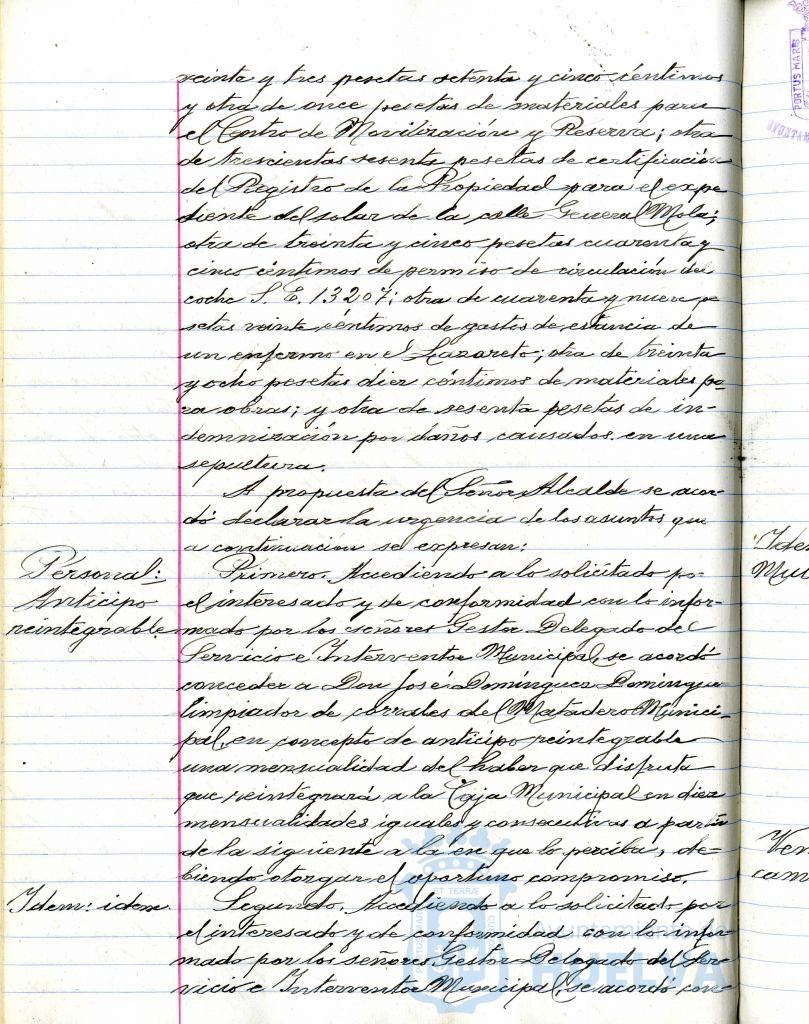 veinte y tres pesetas setenta y cinco céntimos
y otra de once pesetas de materiales para
el Centro de Movilización y Reserva; otra
de trescientas sesenta pesetas de certificación
del Registro de la Propiedad para el expe
diente del solar de la calle General Mola;
otra de treinta y cinco pesetas cuarenta y
cinco céntimos de permiso de circulación del
coche S. E. 13207; otra de cuarenta y nueve pe
setas veinte céntimos de gastos de estancia de
un enfermo en el Lazareto; otra de treinta
y ocho pesetas diez céntimos de materiales pa-
ra obras; y otra de sesenta pesetas de in-
demnización por daños causados en una
sepultura.
A propuesta del Señor Alcalde se acor
dó declarar la urgencia de los asuntos que
a continuacion se expresan:
Personal:
Anticipo
reintegrable
Primero. Accediendo a lo solicitado por
el interesado y de conformidad con lo infor-
mado por los señores Gestor Delegado del
Servicio e Interventor Municipal, se acordó
conceder a Don José Domínguez Domínguez
limpiador de corrales del Matadero Munici-
pal, en concepto de anticipo reintegrable
una mensualidad del haber que disfruta
que reintegrará a la Caja Municipal en diez
mensualidades iguales y consecutivas a partir
de la siguiente a la en que lo perciba, de-
biendo otorgar el oportuno compromiso.
Idem: idem
Segundo. Accediendo a lo solicitado por
el interesado y de conformidad con lo infor-
mado por los señores Gestor Delegado del Ser
vicio e Interventor Municipal, se acordó con-
PORTUS MARIS
Idem
Mun
Ven
cam
PORTUS MARIS ET TERRÆ CU
Ayuntamiento de
HUELVA